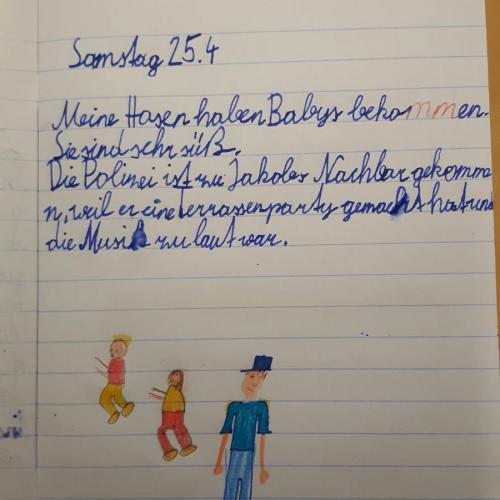 Samstag 25.4
Meine Hasen haben Babys bekommen.
Sie sind sehr süß.
Die Polizei ist zu Jakobs Nachbar gekomme
n, weil er eine Terrassenparty gemacht hat und
die Musik zu laut war.